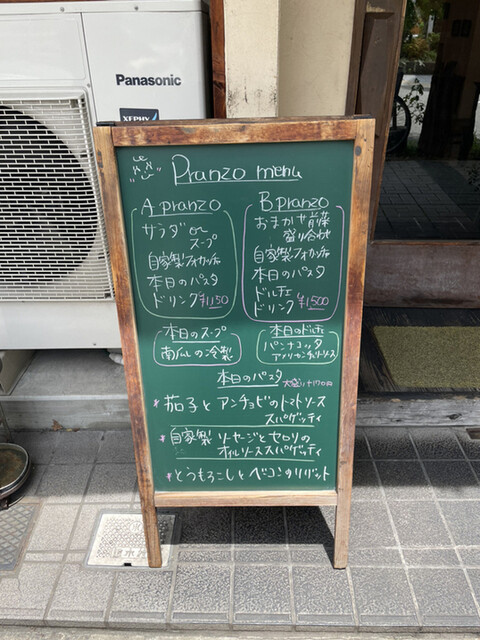 Panasonic
XEPHY
Pranzo menu
A pranzo
サラダ or
スープ
自家製フォカッチャ
本日のパスタ
ドリンク ¥1150
B pranzo
おまかせ前菜
盛り合わせ
自家製フォカッチャ
本日のパスタ
ドルチェ
ドリンク ¥1500
本日のスープ
南瓜の冷製
本日のドルチェ
パンナコッタ
アメリカンチェリーソース
本日のパスタ 大盛り+170円
* 茄子とアンチョビのトマトソース
スパゲッティ
* 自家製ソーセージとセロリの
オイルソーススパゲッティ
* とうもろこしとベーコンのリガット